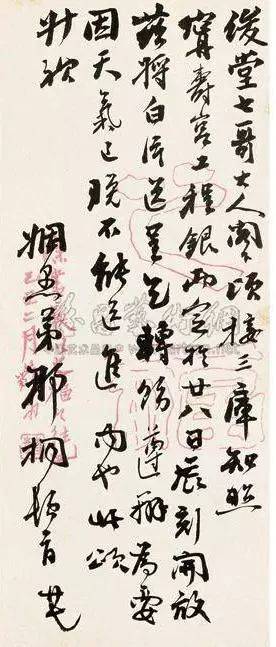 俊堂七哥大人閣下頃接三庫知照
寧壽宮工程銀兩定於廿八日辰刻開放
茲將白片送呈乞轉飭遵辦為要
因天氣已晚不能送進內也此頌
升
姻愚弟桐頓首